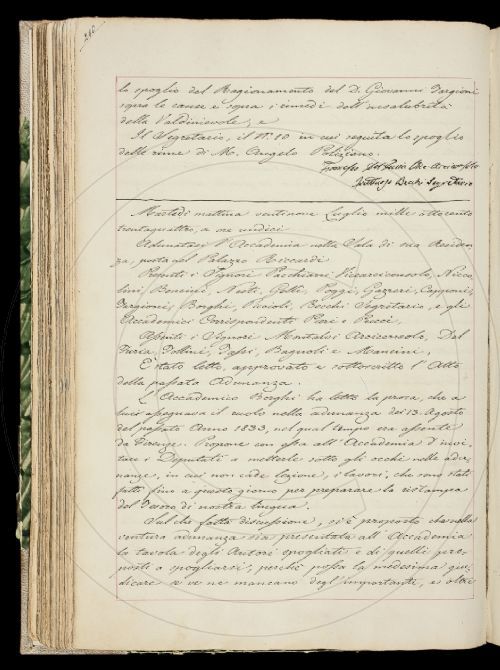 240
lo spoglio del Ragionamento del D. Giovanni Targioni
sopra le cause e sopra i rimedi dell'insalubrità
della Valdinievole; e
Il Segretario, il N.° 10 in cui seguita lo spoglio
delle rime di M. Angelo Poliziano.
Francesco Del Furia Vice-Arciconsolo
Fruttuoso Becchi Segretario
Martedì mattina ventinove Luglio mille ottocento
trentaquattro, a ore undici
Adunatasi l'Accademia nella Sala di sua Residen-
za, posta nel Palazzo Riccardi
Presenti i Signori Pacchiani Vicearciconsolo, Nicco-
lini, Bencini, Nesti, Gelli, Poggi, Gazzeri, Capponi,
Targioni, Borghi, Puccioli, Becchi Segretario, e gli
Accademici Corrispondenti Pieri e Ricci,
Assenti i Signori Montalvi Arciconsolo, Del
Furia, Follini, Tassi, Bagnoli e Mancini,
È stato letto, approvato e sottoscritto l'Atto
della passata Adunanza.
L'Accademico Borghi ha letto la prosa, che a
lui assegnava il ruolo nella adunanza dei 13. Agosto
del passato Anno 1833, nel qual tempo era assente
da Firenze. Propone con essa all'Accademia d'invi-
tare i Deputati a metterle sotto gli occhi nelle adu-
nanze, in cui non cade lezione, i lavori, che sono stati
fatti fino a questo giorno per preparare la ristampa
del Tesoro di nostra lingua.
Sul che fatta discussione, si è proposto che nella
ventura adunanza sia presentata all'Accademia
la tavola degli Autori spogliati e di quelli pro-
posti a spogliarsi; perchè possa la medesima giu-
dicare se ve ne mancano degl'importanti, e oltre